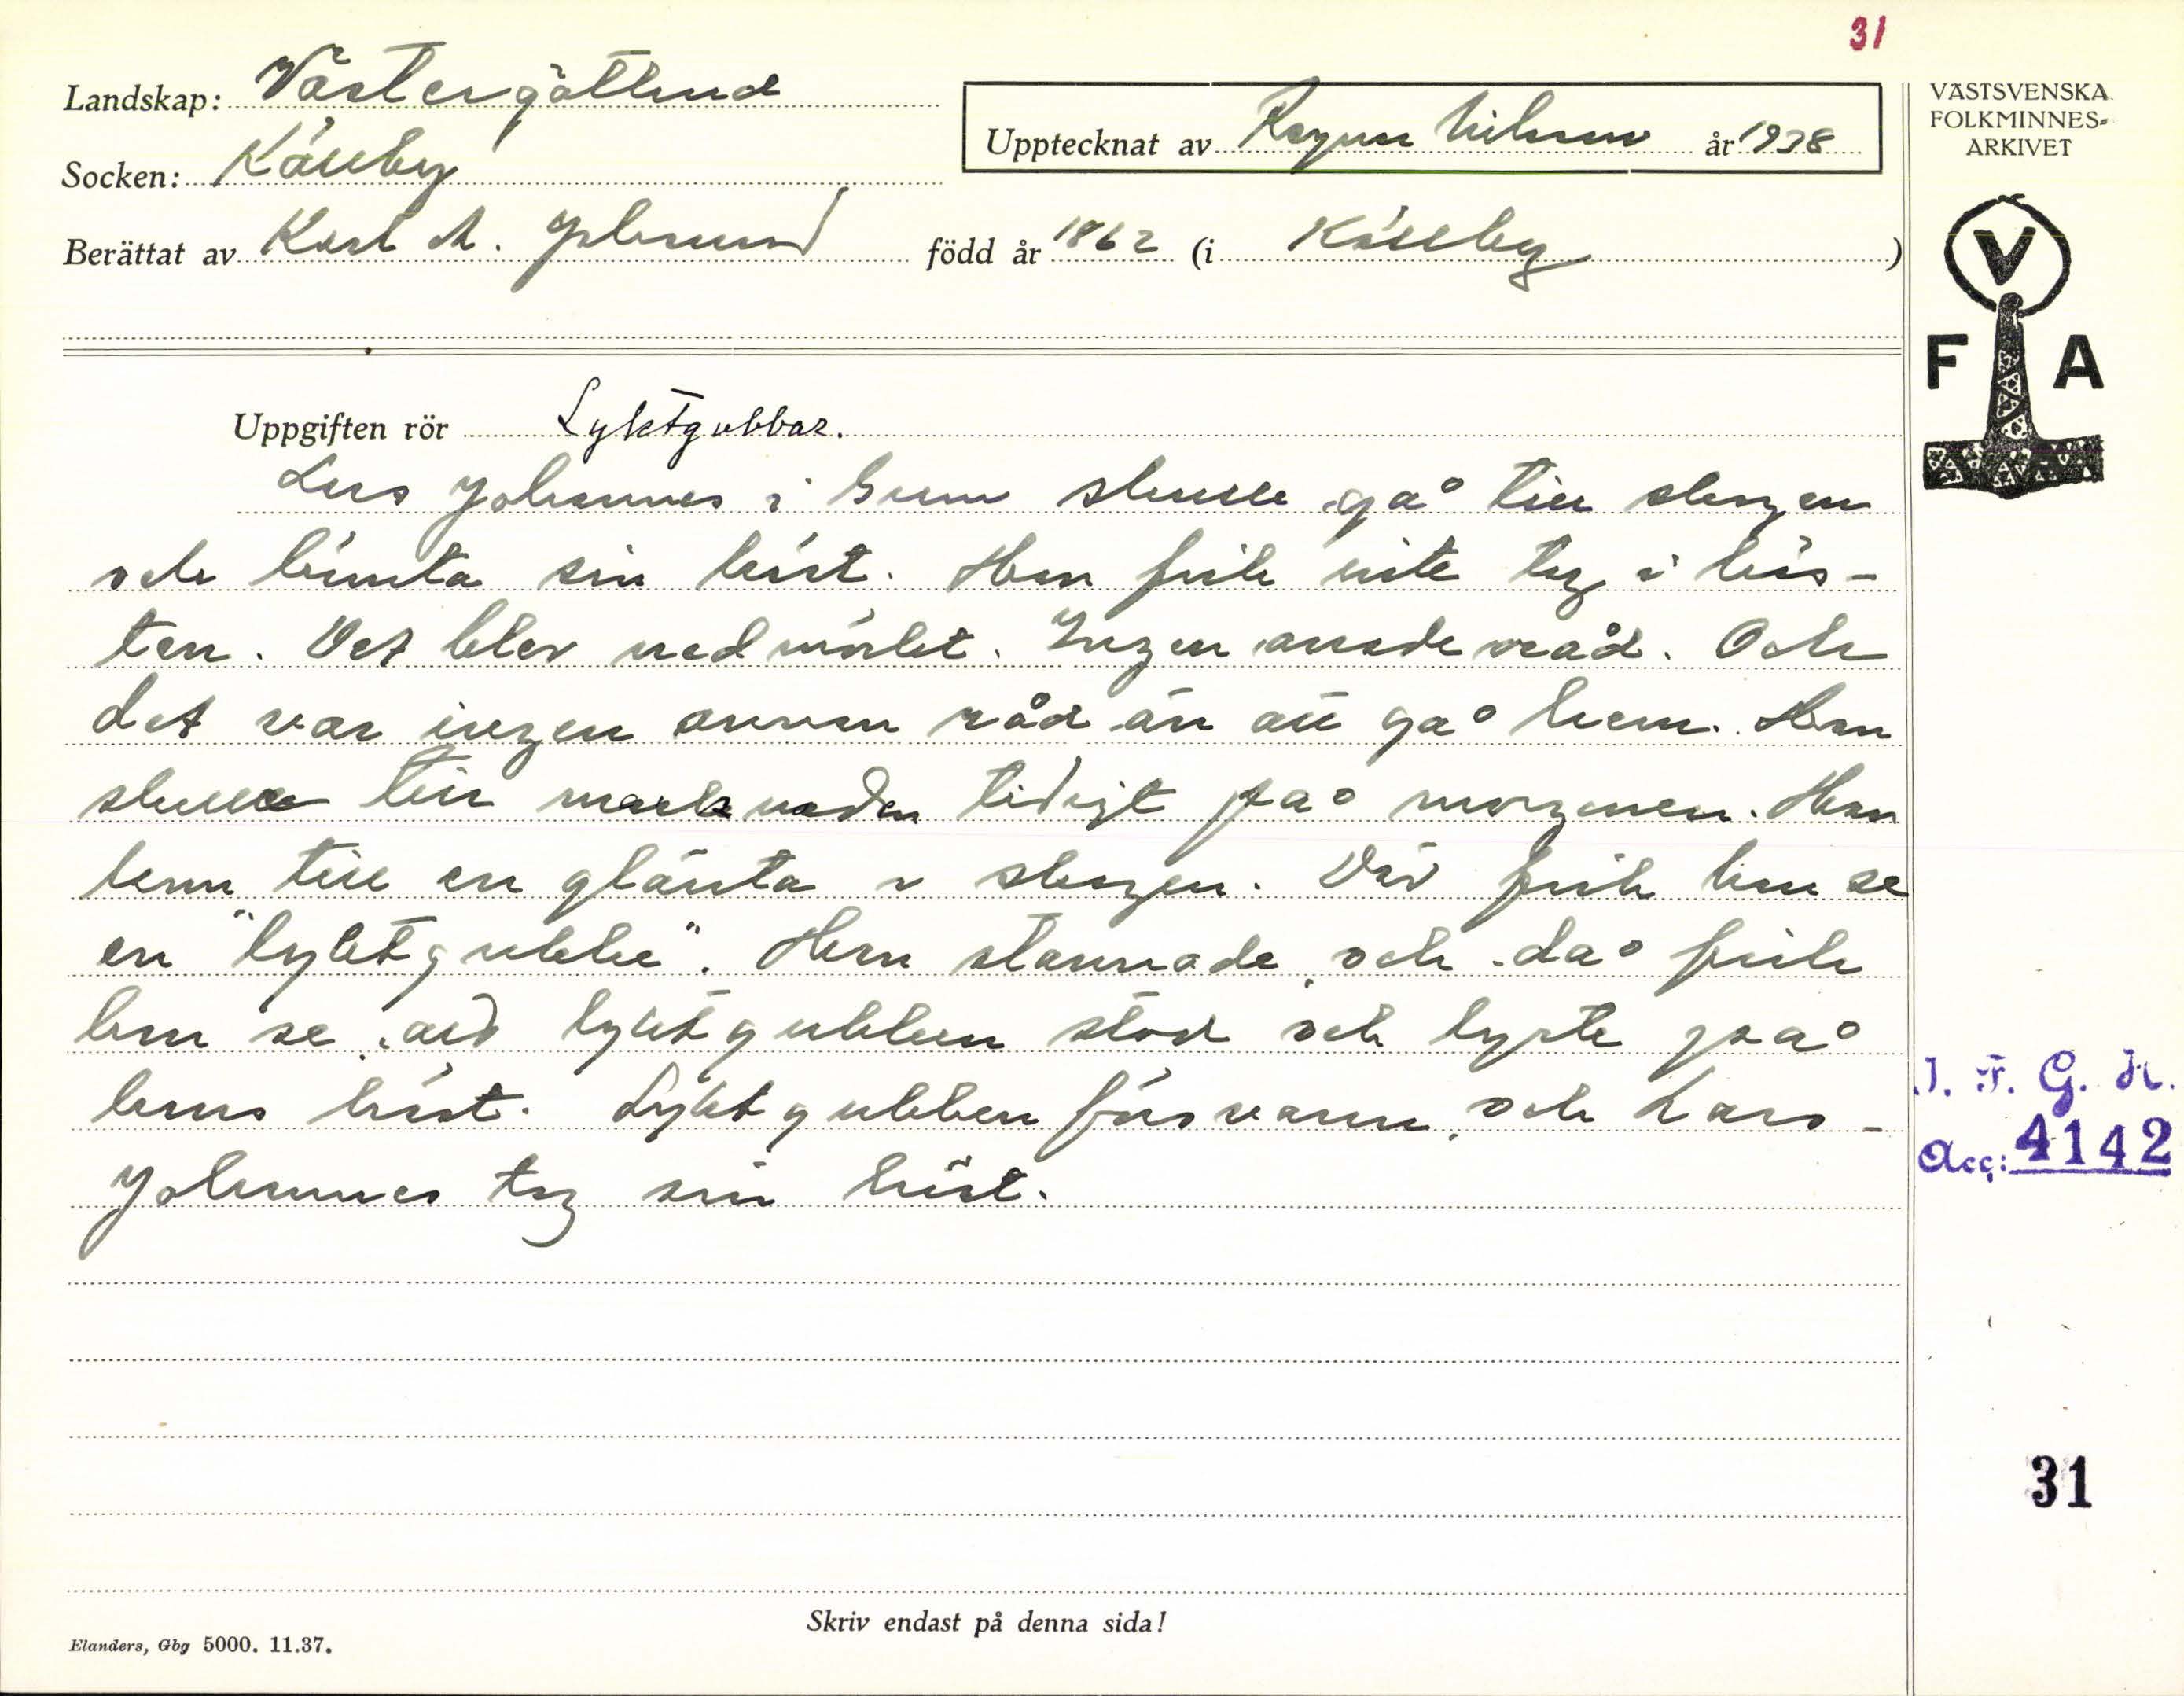 31
Landskap: Västergötland
Upptecknat av Ragnar Nilsson år 1938
VÄSTSVENSKA
FOLKMINNES-
ARKIVET
Socken: Källby
Berättat av Karl A. född år 1862 (i Källby)
V
F A
Uppgiften rör Lyktgubbar.
Lars Johannes i skulle gå till skogen
och hämta sin häst. Han fick inte tag i häs-
ten. Det blev nedmörkt. Ingen annan råd. Och
det var ingen annan råd än att gå hem. Han
skulle till marknaden tidigt på morgonen. Han
kom till en glänta i skogen. Där fick han se
en "lyktgubbe". Han stannade, och då fick
han se, att lyktgubben stod och lyste på
hans häst. Lyktgubben försvann, och Lars-
Johannes tog sin häst.
I. F. G. H.
Acc: 4142
31
Skriv endast på denna sida!
Elanders, Gbg 5000. 11.37.